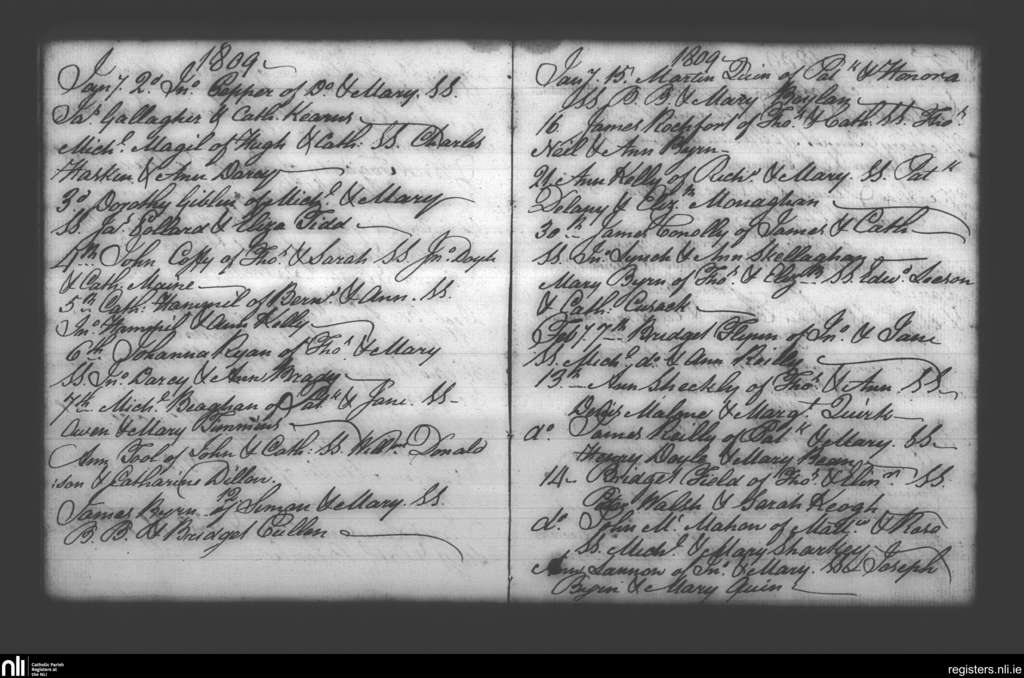 1809
Jany. 2d Jno. Cepper of Do. & Mary. SS.
Jas. Gallagher & Cath. Kearns
Michl. Magil of Hugh & Cath: SS. Charles
Haskin & Ann Darcy
3d Dorothy Giblin of Michl. & Mary
SS. Jas. Pollard & Eliza Tidd
4th John Coffy of Thos. & Sarah SS. Jno. Doyle
& Cath. Maine
5th Cath: of Bernd. & Ann. SS.
Jno. & Ann Kelly
6th Johanna Ryan of Thos. & Mary
SS. Jno. Darcy & Ann Brady
7th Michl. Beaghan of Patk. & Jane. SS
Owen & Mary Timmins
Ann Tool of John & Cath: SS. Willm. Donald
son & Catharine Dillon.
James Byrn of Simon & Mary. SS.
12
B. B. & Bridget Cullen
1809
Jany. 15. Martin Quin of Patk. & Honora
SS. B. B. & Mary Boylan
16 James Rochfort of Thos. & Cath: SS. Thos.
Neil & Ann Byrn
Ann Kelly of Richd. & Mary. SS. Patk.
Delany & Elizth. Monaghan
30th James Conolly of James & Cath
SS. Jno. Lynch & Ann Skellaghan
Mary Byrn of Thos. & Elizth. SS. Edwd. Leeson
& Cath: Cusack
Feby. 7th Bridget Flynn of Jno. & Jane
SS. Michl. do. & Ann Reilly
13th Ann Sheckly of Thos. & Ann SS
Denis Malone & Margt. Quirk
do. James Reilly of Patk. & Mary. SS
Henry Doyle & Mary
14 Bridget Field of Thos. & SS
Peter Walsh & Sarah Keogh
do. John Mc. Mahon of Mattw. & Rose
SS. Michl. & Mary Sharkey
Ann Lannon of Jno. & Mary. SS Joseph
Byrn & Mary Quin
nli
Catholic Parish
Registers at
the NLI
registers.nli.ie